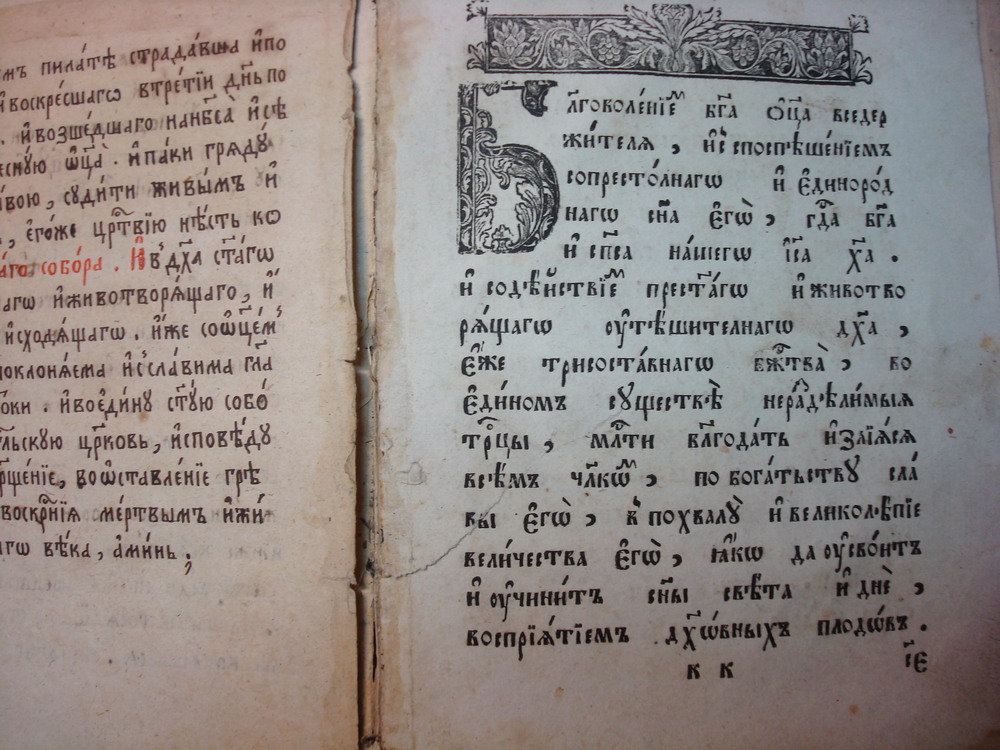 мъ пила́тѣ страда́вша и҆по
и҆воскре́сшагѡ втре́тїи дн҃ь по
. и҆возше́дшаго нанб҃са̀ и҆сѣ
есну́ю ѻ҆ц҃а̀ . и҆па́ки гряду́
вою, суди́ти живы́мъ и҆
, є҆го́же црⷭ҇твїю нѣ́сть ко
аго собо́ра . И҆в̾дх҃а ст҃а́гѡ
агѡ и҆животворя́щаго, и҆
и҆сходя́щагѡ . и҆́же соѻ҆ц҃е́мъ
поклоня́ема и҆с̾сла́вима гл҃а
оки . и҆воеди́ну ст҃у́ю собо́
льскую цр҃ковь, и҆сповѣ́ду
рⷭ҇ще́нїе, воѡ҆ставле́нїе грѣ
воскрⷭ҇нїя ме́ртвымъ и҆жи́
агѡ вѣ́ка, а҆ми́нь ;
Бл҃говоле́нїемъ бг҃а ѻ҆ц҃а̀ вседер
жи́теля , и҆с̾ споспѣше́нїемъ
сопресто́лнагѡ и҆ є҆диноро́д
нагѡ сн҃а є҆гѡ̀ , гдⷭ҇а бг҃а
и҆ сп҃са на́шегѡ і҆с҃а хрⷭ҇а .
и҆ содѣ́йствїемъ прест҃а́гѡ и҆животво
ря́щагѡ ᲂу҆тѣ́шителнагѡ дх҃а ,
є҆́же трисоста́внагѡ бжⷭ҇тва̀ , во
є҆ди́номъ существѣ̀ нераздѣли́мыя
трⷪ҇цы , млⷭ҇ти благода́ть и҆зaїя́ся
все́мъ чл҃кѡмъ , по бога́тьству сла́
вы є҆гѡ̀ , в̾ похвалꙋ̀ и҆ великолѣ́пїе
вели́чества є҆гѡ̀ , ꙗ҆́кѡ да ᲂу҆сво́итъ
и҆ ᲂу҆чини́тъ сн҃ы свѣ́та и҆ днѐ ,
воспрїя́тїемъ дх҃о́вныхъ плодѡ́въ .
к к сі҃є